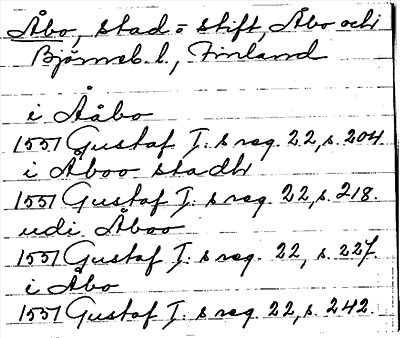 Åbo, stad = stift, Åbo och
Björneb. l., Finland
i Ååbo
1551 Gustaf I: s reg. 22, s. 204.
i Åboo stadh
1551 Gustaf I: s reg. 22, s. 218.
udi Åboo
1551 Gustaf I: s reg. 22, s. 227.
i Åbo
1551 Gustaf I: s reg. 22, s. 242.